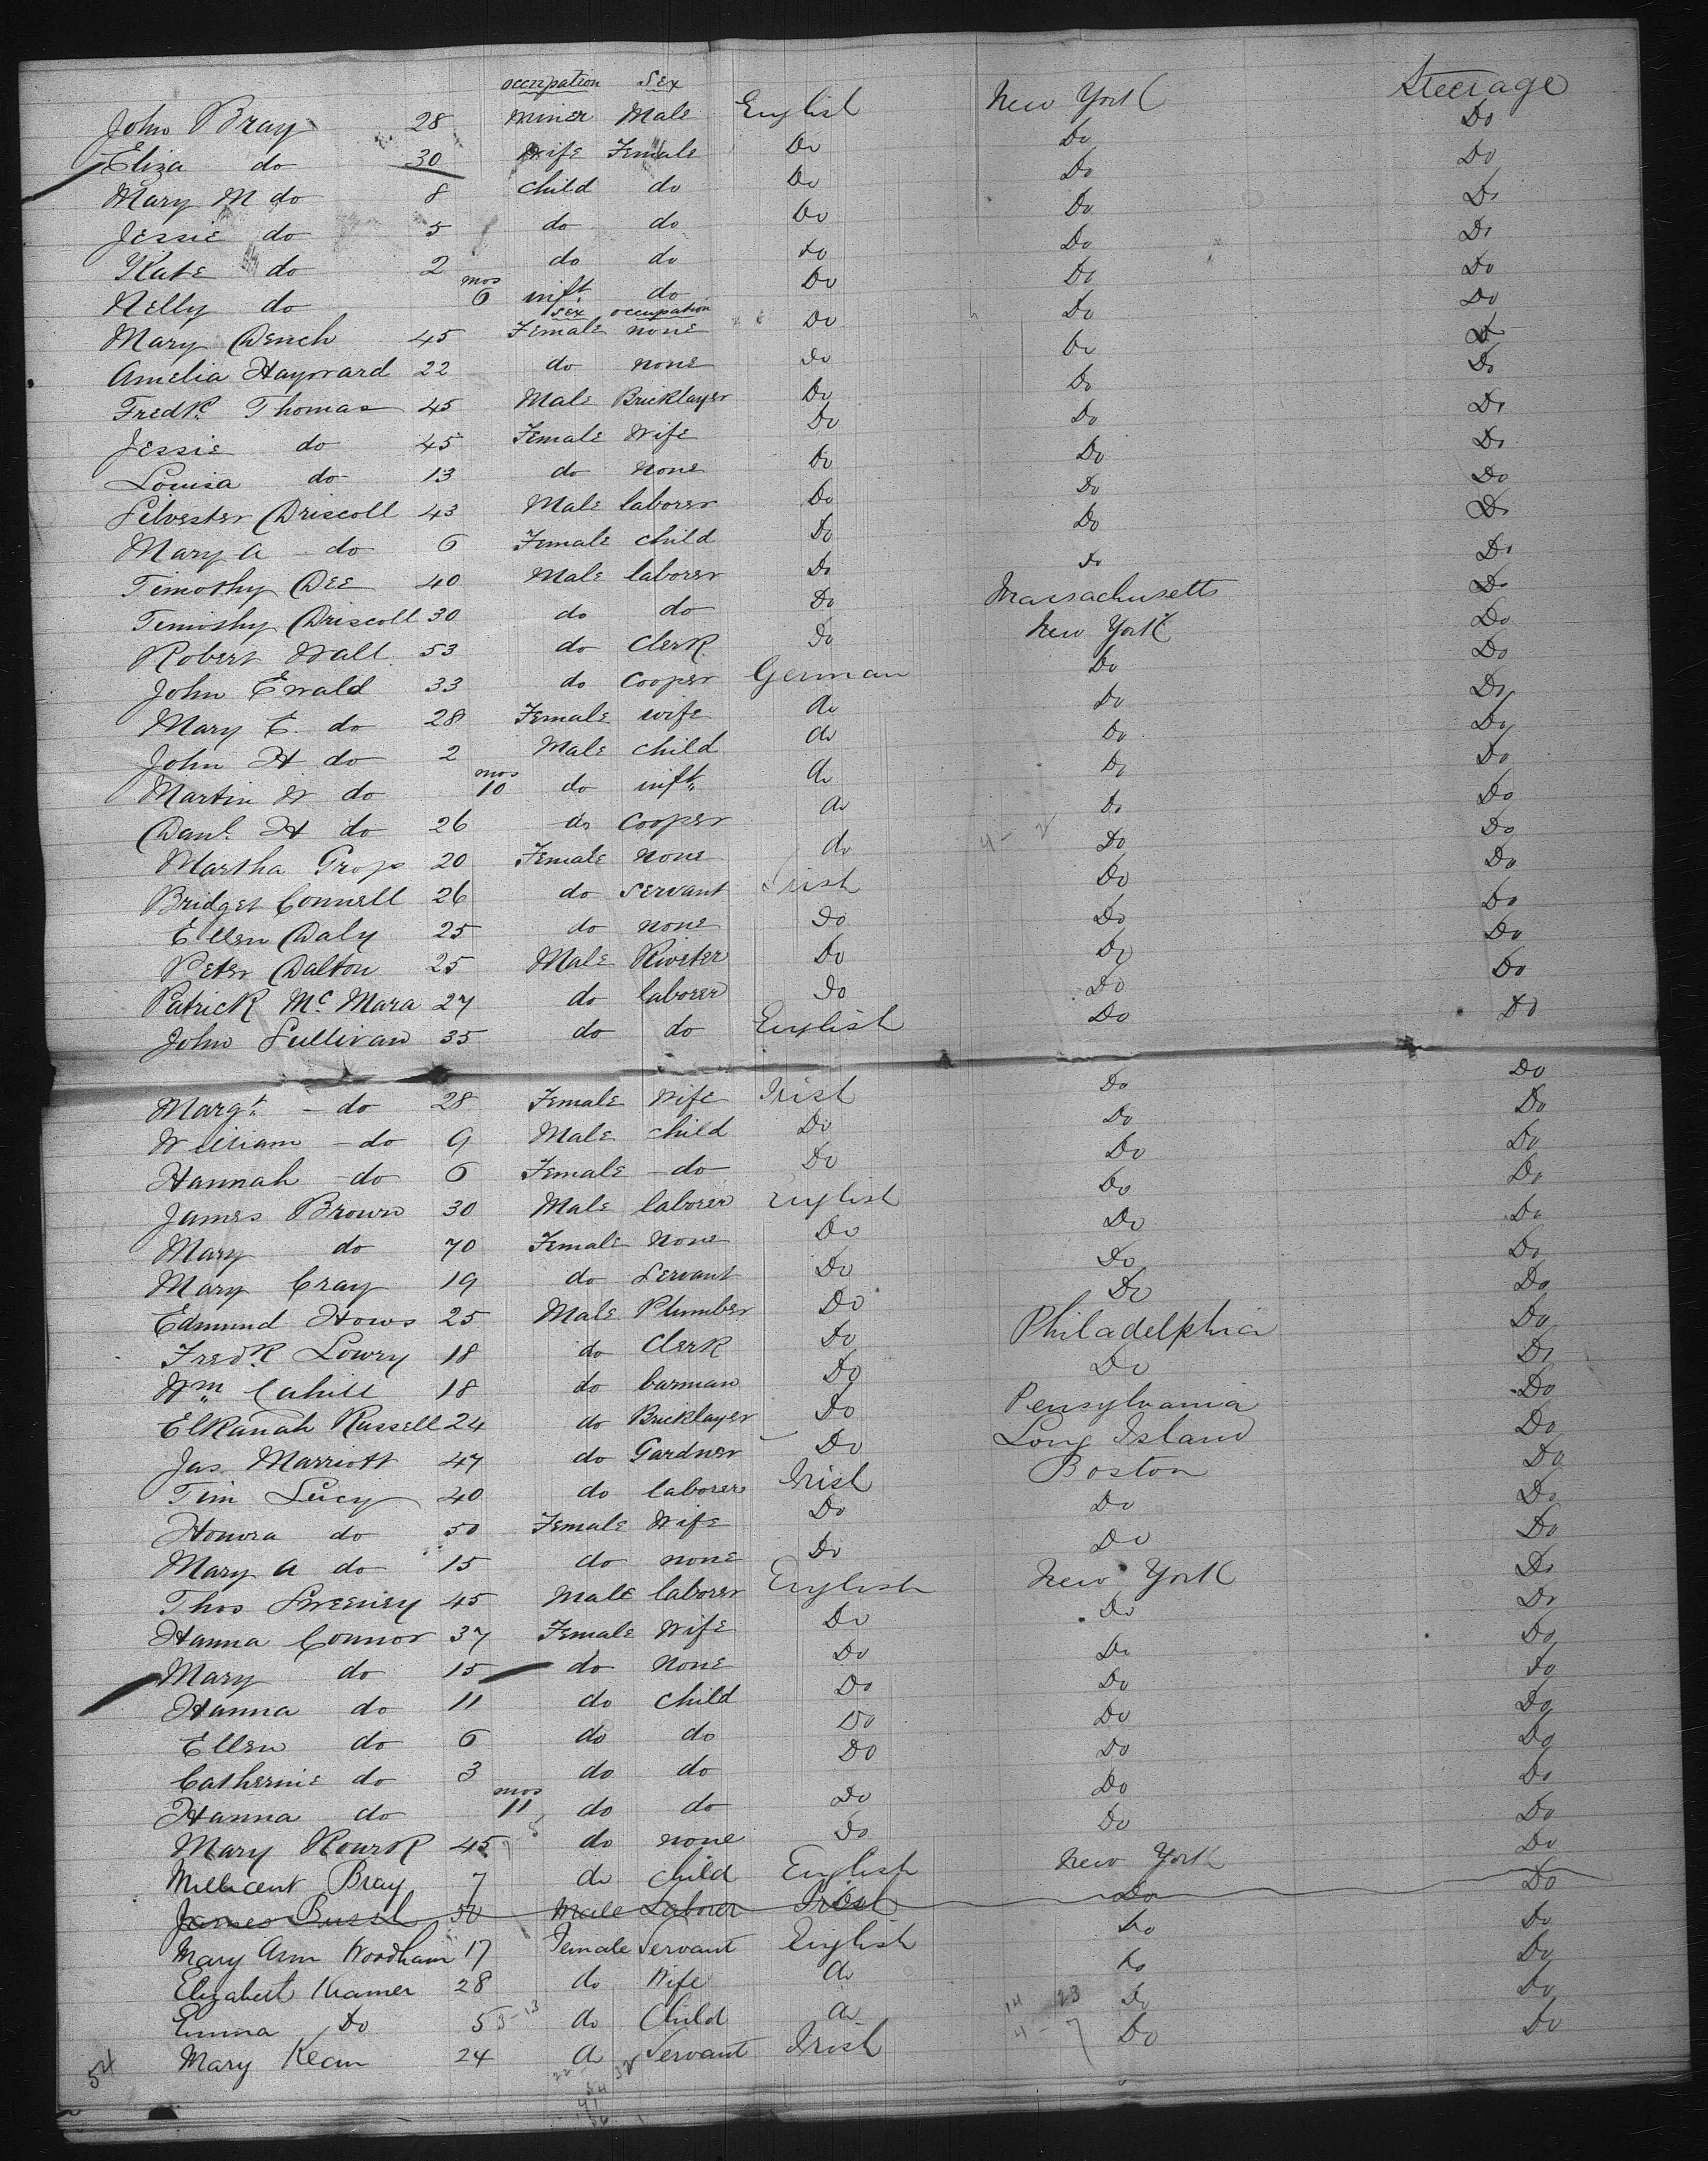 occupation Sex
John Bray 28 miner Male English New York Steerage
Eliza do 30 Wife Female Do Do Do
Mary M do 8 Child do Do Do Do
Jessie do 5 do do Do Do Do
Kate do 2 do do do Do Do
Nelly do mos 6 inft. do Do Do Do
Sex occupation
Mary Dench 45 Female none Do Do Do
Amelia Hayward 22 do none do Do Do
Fredk. Thomas 45 Male Bricklayer Do Do Do
Jessie do 45 Female Wife Do Do Do
Louisa do 13 do none Do Do Do
Silvester Driscoll 43 Male laborer Do Do Do
Mary A do 6 Female child Do Do Do
Timothy Dee 40 Male laborer Do Do Do
Timothy Driscoll 30 do do Do Massachusetts Do
Robert Wall 53 do Clerk Do New York Do
John Ewald 33 do Cooper German Do Do
Mary E. do 28 Female wife do Do Do
John H do 2 Male child do Do Do
Martin W do mos 10 do inft. do Do Do
Danl. H do 26 do Cooper do Do Do
Martha 20 Female none do Do Do
Bridget Connell 26 do Servant Irish Do Do
Ellen Daly 25 do none Do Do Do
Peter Dalton 25 Male Riveter Do Do Do
Patrick McMara 27 do laborer Do Do Do
John Sullivan 35 do do English Do Do
Margt. do 28 Female Wife Irish Do Do
William do 9 Male child Do Do Do
Hannah do 6 Female do Do Do Do
James Brown 30 Male laborer English Do Do
Mary do 70 Female None Do Do Do
Mary Cray 19 do Servant Do Do Do
Edmund Hows 25 Male Plumber Do Do Do
Fredk. Lowry 18 do Clerk Do Philadelphia Do
Wm. Cahill 18 do barman Do Do Do
Elkanah Russell 24 do Bricklayer Do Pensylvania Do
Jas. Marriott 47 do Gardner Do Long Island Do
Tim Lucy 40 do laborer Irish Boston Do
Honora do 50 Female Wife Do Do Do
Mary A do 15 do none Do Do Do
Thos Sweeney 45 Male laborer English New York Do
Hanna Connor 37 Female Wife Do Do Do
Mary do 15 do none Do Do Do
Hanna do 11 do child Do Do Do
Ellen do 6 do do Do Do Do
Catherine do 3 do do Do Do Do
Hanna do mos 11 do do Do Do Do
Mary Rourk 45 do none Do Do Do
Millicent Bray 7 do child English New York Do
James 50 Male Laborer Irish Do Do
Mary Ann Woodham 17 Female Servant English Do Do
Elizabeth Kramer 28 do Wife do Do Do
Emma Do 5 do Child do Do Do
Mary Kean 24 do Servant Irish Do Do
54